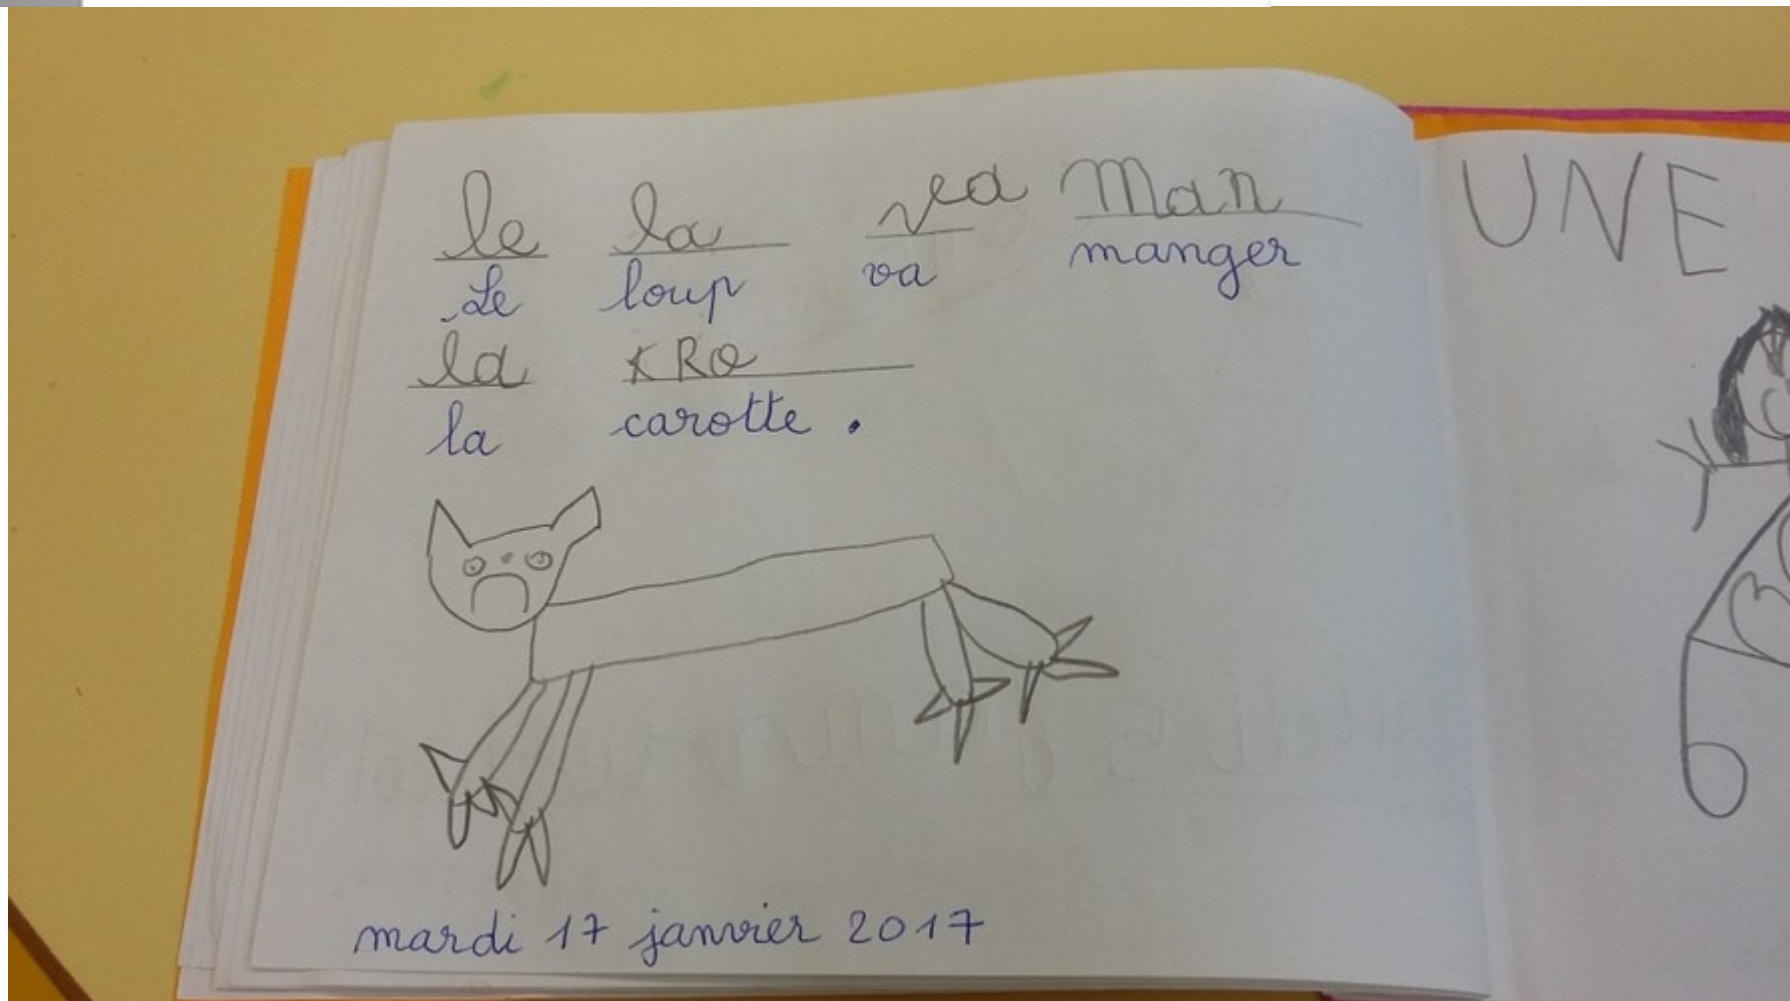 le la va Man
Le loup va manger
la KRO
la carotte .
mardi 17 janvier 2017
UNE